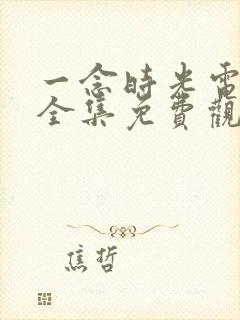 一念時光電
全集免費觀
焦哲